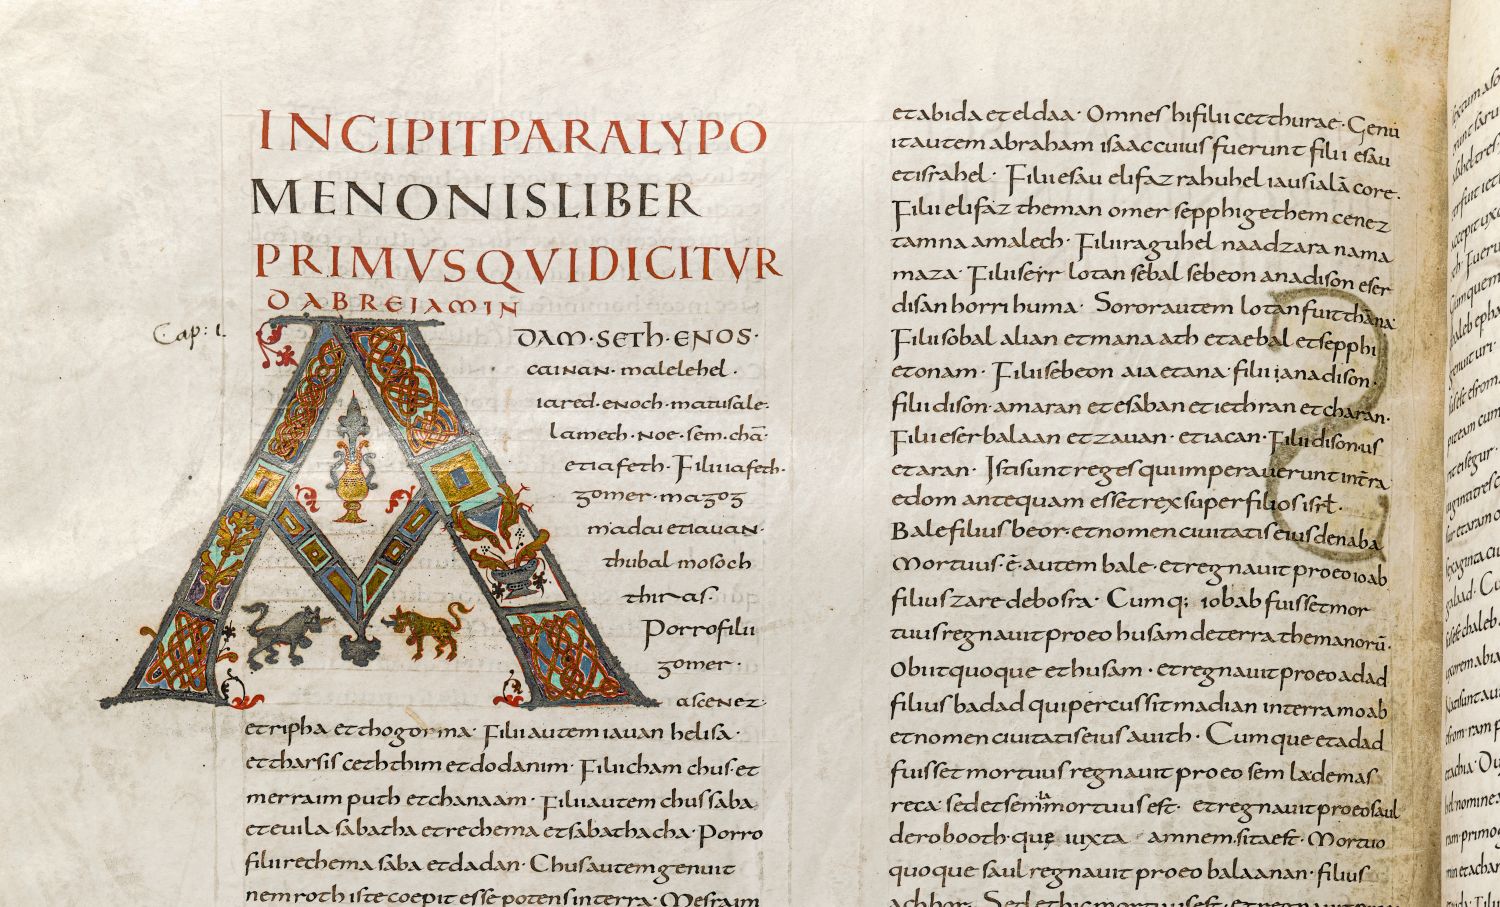 INCIPIT PARALYPO
MENON IS LIBER
PRIMUS QUI DICITUR
DABREIAMIN
Cap: 1.
ADAM · SETH · ENOS ·
CAINAN · malelehel ·
iared · enoch · matusale·
lamech · noe · sem · chā·
et iafeth · Filii iafeth·
gomer · magog
madai et iauan ·
thubal mosoch
thiras ·
Porro filii
gomer ·
ascenez·
et ripha et thogorma · Filii autem iauan helisa ·
et tharsis cethim et dodanim · Filii cham chus · et
merraim puth et chanaam · Filii autem chus saba
et euila sabatha et rechema et sabathacha · Porro
filii rethema saba et dadan · Chus autem genuit
nemroth iste coepit esse potens in terra · Mesraim
et abida et eldaa · Omnes hi filii cetthurae · Genu
it autem abraham isaac cuius fuerunt filii esau
et israhel · Filii esau elifaz rahuhel iaus ialā core·
Filii elifaz theman omer sepphi gethem cenez
tamna amalech · Filii raguhel naad zara nama
maza · Filii seyr lotan sebal sebeon ana dison eser
disan horri huma · Soror autem lotan fuit thāna·
Filii sobal alian et mana ath et aebal et sepphi
et onam · Filii sebeon aia et ana · filii ana dison·
filii dison · amaran et esaban et iethran et charan·
Filii eser balaan et zauan · et iacan · Filii dison · us
et aran · Isti sunt reges qui imperauerunt in tra
edom antequam esset rex super filios isrł ·
Bale filius beor · et nomen ciuitatis eius denaba
Mortuus · ē · autem bale · et regnauit pro eo iobab
filius zare de bosra · Cumq; iobab fuisset mor
tuus regnauit pro eo husam de terra themanorū·
Obiit quoque et husam · et regnauit pro eo adad
filius badad qui percussit madian in terra moab
et nomen ciuitatis eius auith · Cumque et adad
fuisset mortuus regnauit pro eo semla de mas
reca · sed et semla mortuus est · et regnauit pro eo saul
de robooth · quę iuxta amnem · sita est · Mortuo
quoque saul regnauit pro eo balaanan · filius
achbor · Sed et hic mortuus est · et regnauit pro